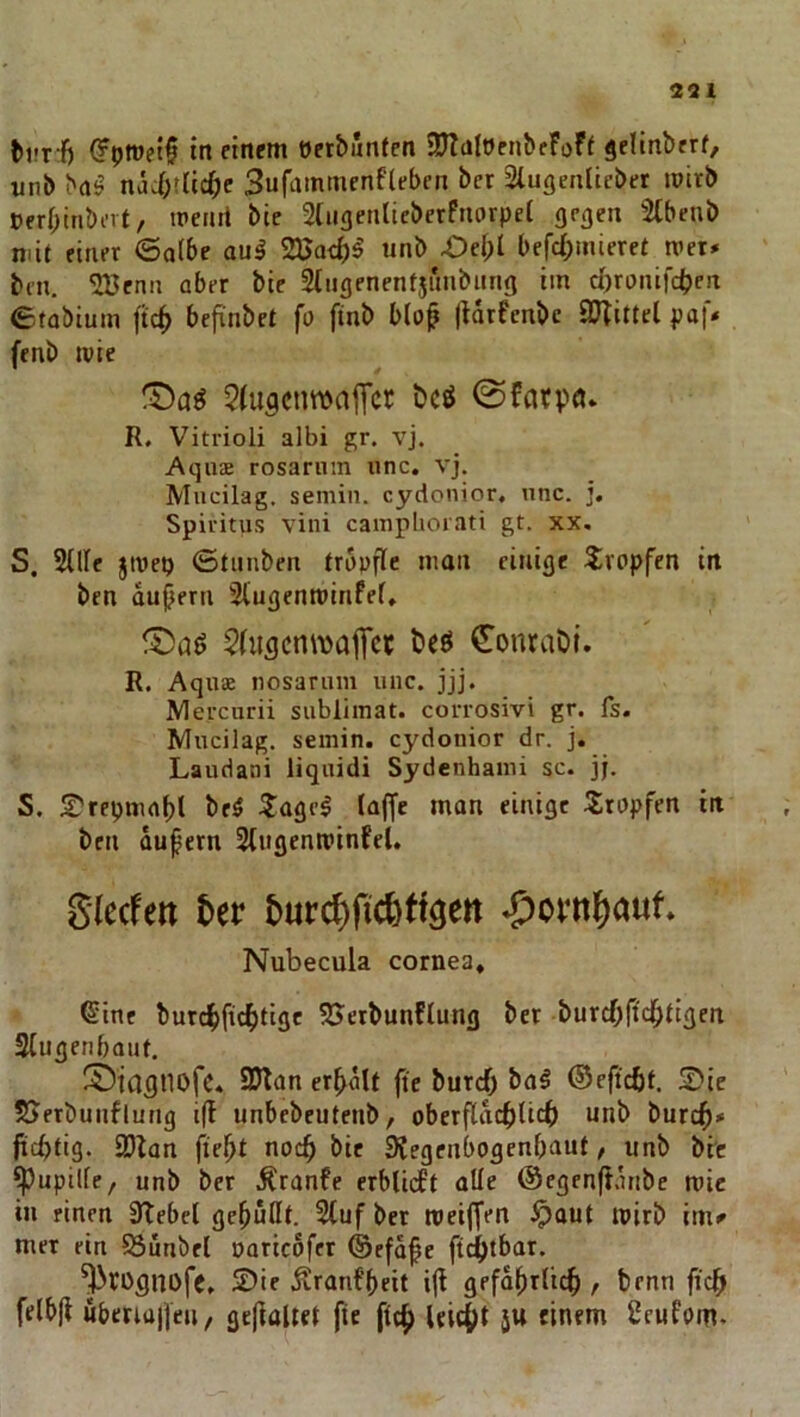 221
durch Eyweiß in einem verdünten Malvendekokt gelindert,
und das nächtliche Zusammenkleben der Augenlieder wird
verhindert, wenn die Augenliederknorpel gegen Abend
mit einer Salbe aus Wachs und Oehl beschmieret wer-
den. Wenn aber die Augenentzündung im chronischen
Stadium sich befindet so sind bloß stärkende Mittel pas-
send wie
Das Augenwasser des Skarpa.
R. Vitrioli albi gr. vj.
Aquæ rosarum unc. vj.
Mucilag. semin. cydonior. unc. j.
Spiritus vini camphorati gt. xx.
S. Alle zwey Stunden tröpfle man einige Tropfen in
den äußern Augenwinkel.
Das Augenwasser des Conradi.
R. Aquæ nosarum unc. jjj.
Mercurii sublimat. corrosivi gr. ſs.
Mucilag. semin. cydonior dr. j.
Laudani liquidi Sydenhami sc. jj.
S. Dreymahl des Tages lasse man einige Tropfen in
den äußern Augenwinkel.
Flecken der durchsichtigen Hornhaut.
Nubecula cornea.
Eine durchsichtige Verdunklung der durchsichtigen
Augenhaut.
Diagnose. Man erhält sie durch das Gesicht. Die
Verdunklung ist unbedeutend, oberflächlich und durch-
sichtig. Man sieht noch die Regenbogenhaut, und die
Pupille, und der Kranke erblickt alle Gegenstände wie
in einen Nebel gehüllt. Auf der weissen Haut wird im-
mer ein Bündel varicöser Gefäße sichtbar.
Prognose. Die Krankheit ist gefährlich, denn sich
selbst überlassen, gestaltet sie sich leicht zu einem Leukom.